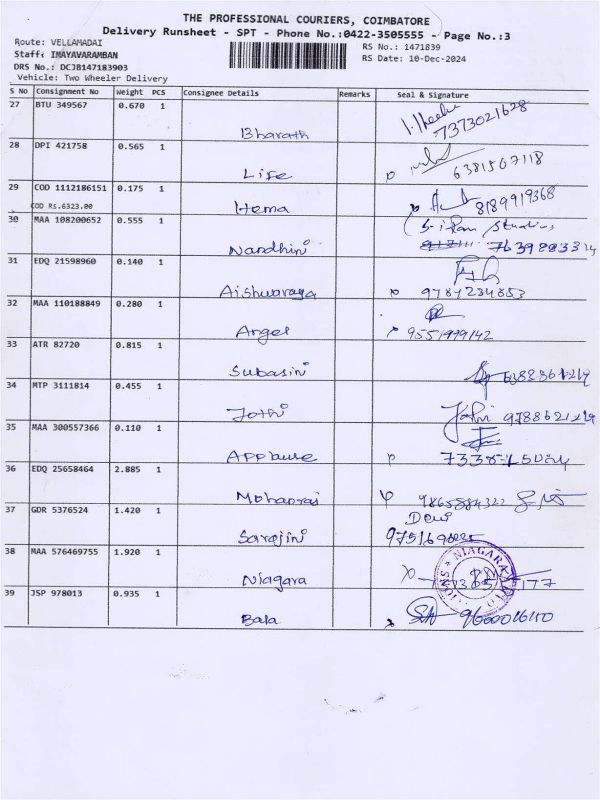 THE PROFESSIONAL COURIERS, COIMBATORE
Delivery Runsheet - SPT - Phone No.:0422-3505555 - Page No.:3
Route: VELLAMADAI
Staff: IMAYAVARAMBAN
DRS No.: DCJB147183903
Vehicle: Two Wheeler Delivery
RS No.: 1471839
RS Date: 10-Dec-2024
S No Consignment No Weight PCS Consignee Details Remarks Seal & Signature
27 BTU 349567 0.670 1 Bharath 7373021628
28 DPI 421758 0.565 1 Life 6381507118
29 COD 1112186151 0.175 1 Hema 8189919368
COD Rs.6323.00
30 MAA 108200652 0.555 1 Nandhini
31 EDQ 21598960 0.140 1 Aishwaraya 9787234853
32 MAA 110188849 0.280 1 Angel 9551999142
33 ATR 82720 0.815 1 Subasini
34 MTP 3111814 0.455 1 Jothi Jothi 9788621214
35 MAA 300557366 0.110 1 Applause
36 EDQ 25658464 2.885 1 Mohanraj 9865884322
37 GDR 5376524 1.420 1 Sarojini Devi
38 MAA 576469755 1.920 1 Niagara NIAGARA
39 JSP 978013 0.935 1 Bala 9600016110